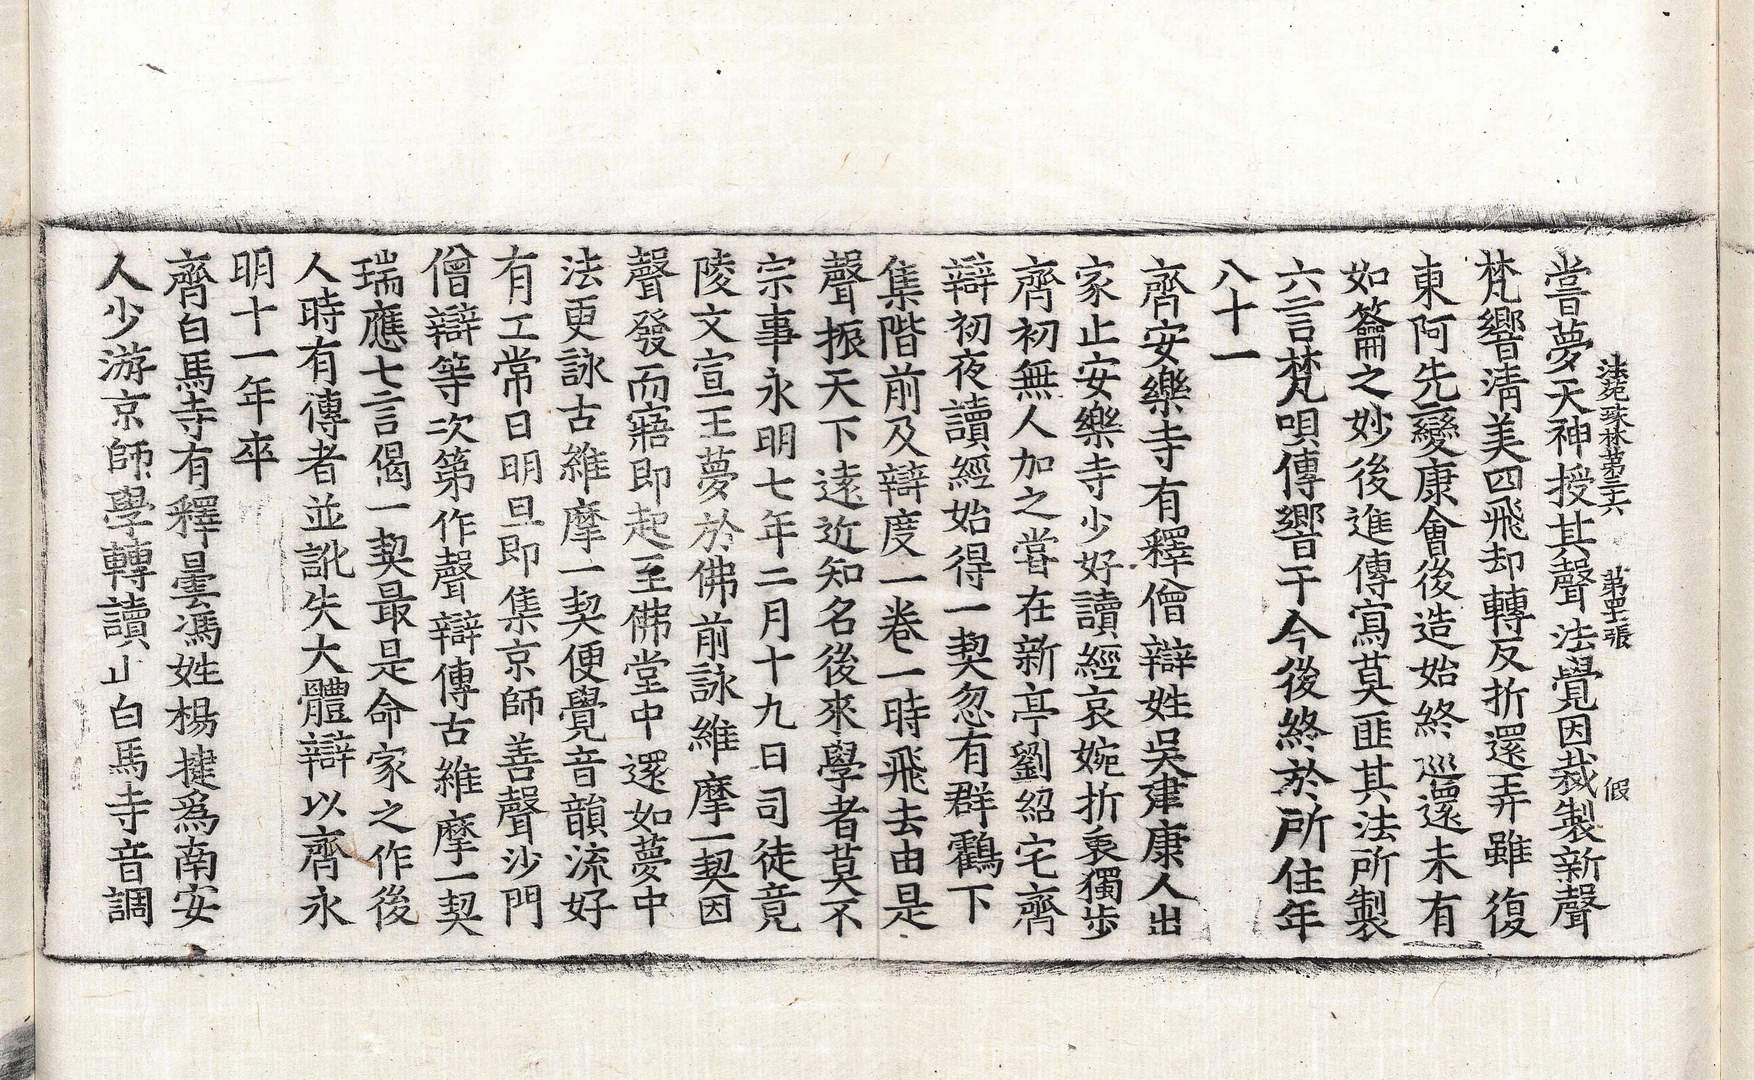 法苑珠林第三十六　第四十二張　假
嘗夢天神授其聲法覺因裁製新聲
梵響清美四飛却轉反折還弄雖復
東阿先變康會後造始終巡還未有
如籥之妙後進傳寫莫匪其法所製
六言梵唄傳響于今後終於所住年
八十一
齊安樂寺有釋僧辯姓吳建康人出
家止安樂寺少好讀經哀婉折衷獨步
齊初無人加之嘗在新亭劉紹宅齊
辯初夜讀經始得一契忽有群鸖下
集階前及辯度一卷一時飛去由是
聲振天下遠近知名後來學者莫不
宗事永明七年二月十九日司徒竟
陵文宣王夢於佛前詠維摩一契因
聲發而寤即起至佛堂中還如夢中
法更詠古維摩一契便覺音韻流好
有工常日明旦即集京師善聲沙門
僧辯等次第作聲辯傳古維摩一契
瑞應七言偈一契最是命家之作後
人時有傳者並訛失大體辯以齊永
明十一年卒
齊白馬寺有釋曇馮姓楊揵為南安
人少游京師學轉讀止白馬寺音調